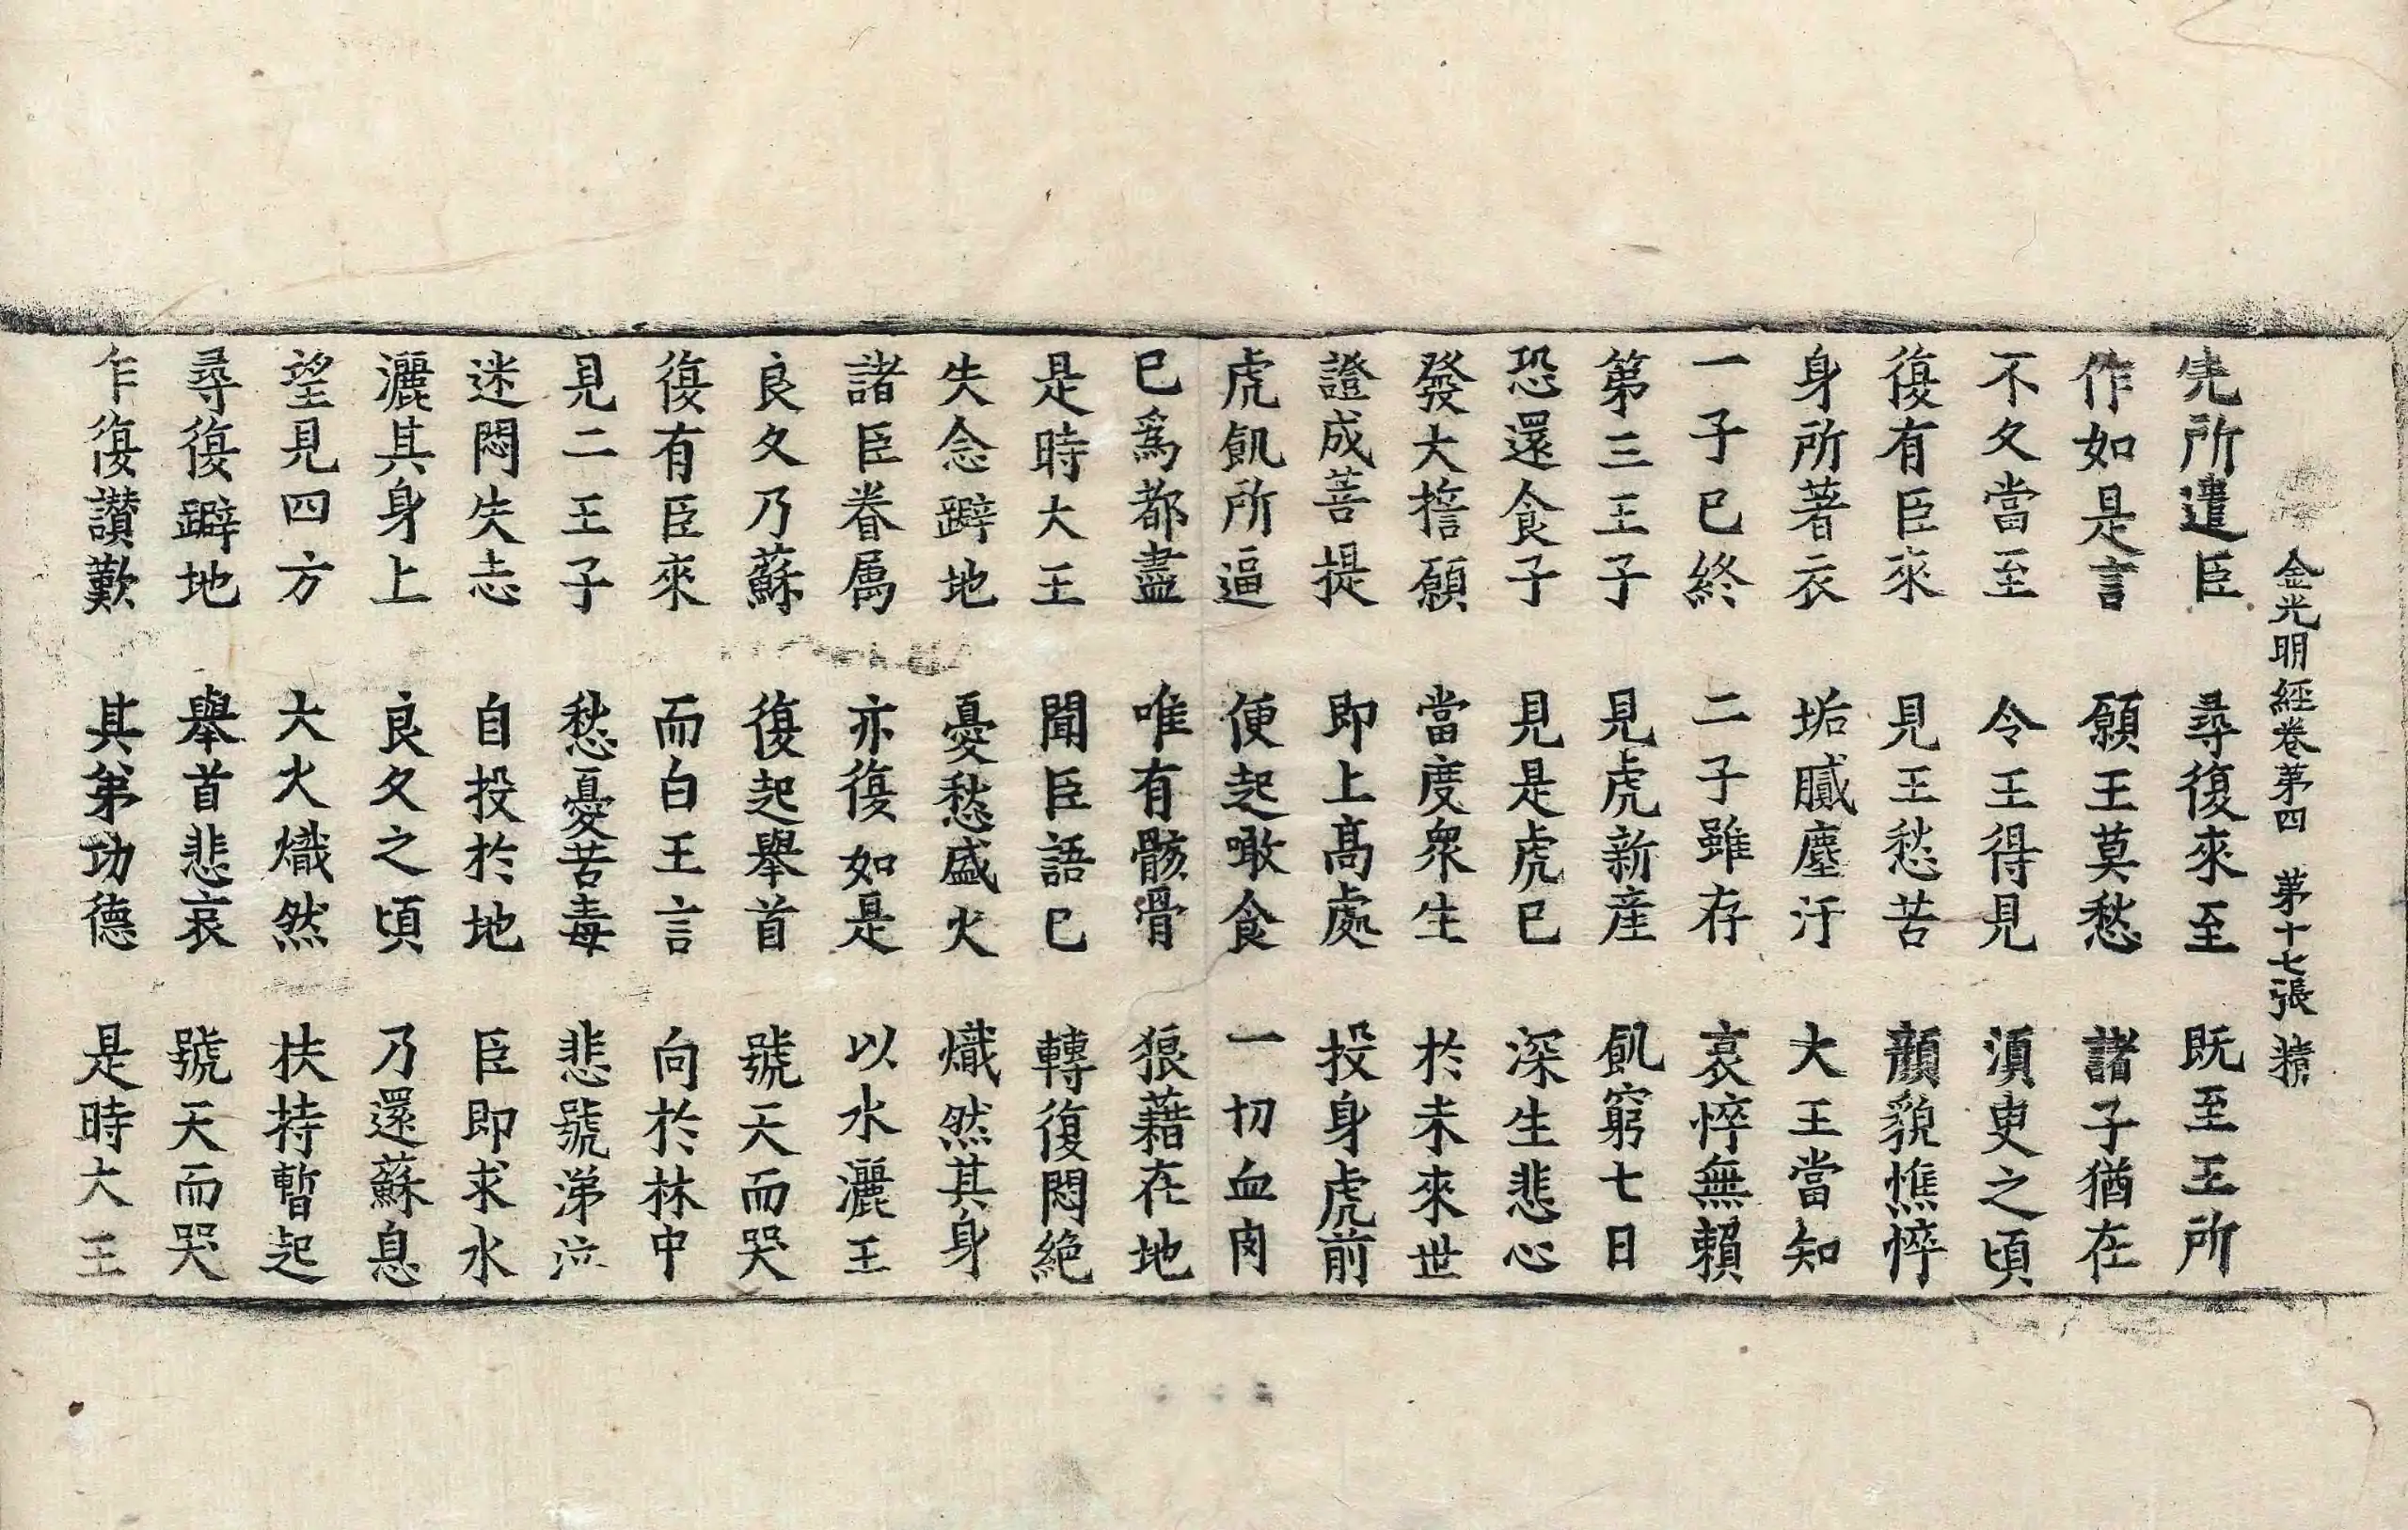 金光明經卷第四 第十七張 
先所遣臣 尋復來至 既至王所
作如是言 願王莫愁 諸子猶在
不久當至 令王得見 湏臾之頃
復有臣來 見王愁苦 顏貌憔悴
身所著衣 垢膩塵汙 大王當知
一子已終 二子雖存 哀悴無賴
第三王子 見虎新産 飢窮七日
恐還食子 見是虎已 深生悲心
發大擔願 當度衆生 於未來世
證成菩提 即上髙處 投身虎前
虎飢所逼 便起噉食 一切血肉
已爲都盡 唯有骸骨 狼藉在地
是時大王 聞臣語已 轉復悶絶
失念躃地 憂愁盛火 熾然其身
諸臣眷属 亦復如是 以水灑王
良久乃蘇 復起舉首 號天而哭
復有臣來 而白王言 向於林中
見二王子 愁憂苦毒 悲號涕泣
迷悶失志 自投於地 臣即求水
灑其身上 良久之頃 乃還蘇息
望見四方 大火熾然 扶持暫起
尋復躃地 舉首悲哀 號天而哭
乍復讃歎 其弟功德 是時大王